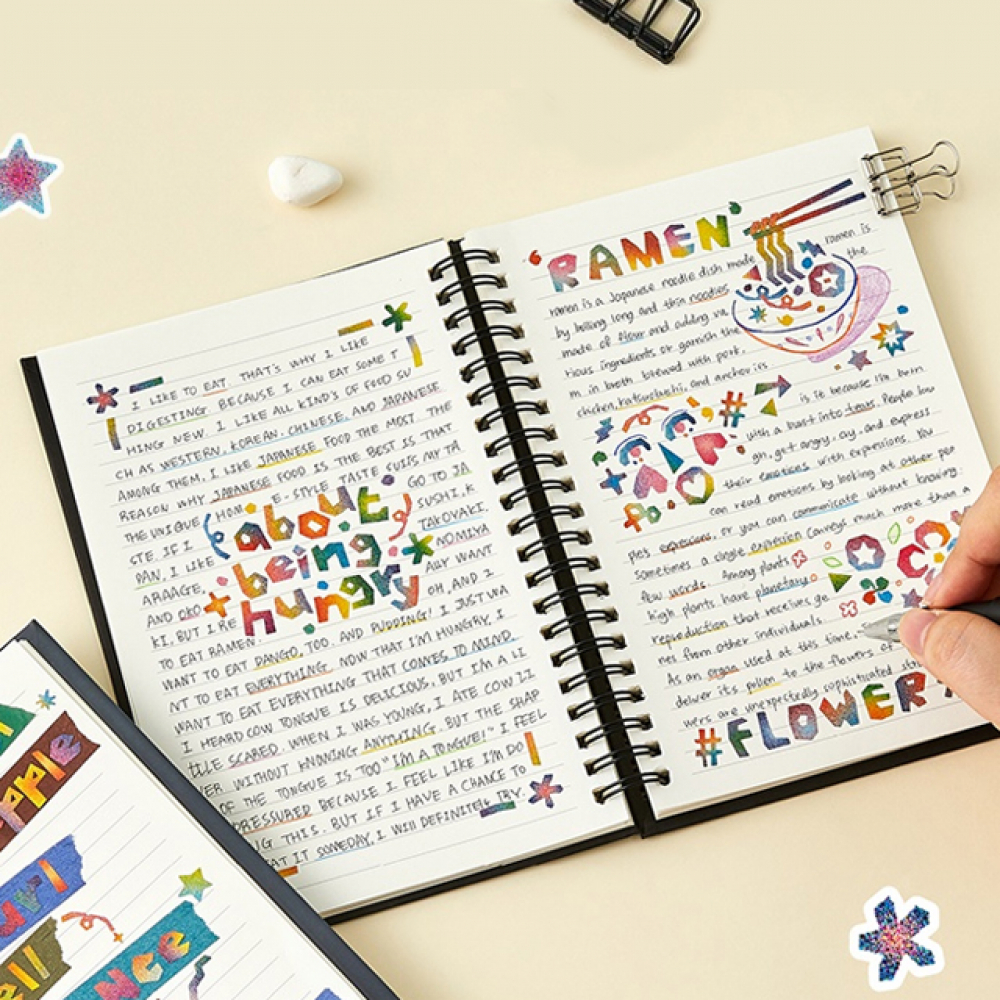 I LIKE TO EAT. THAT'S WHY I LIKE
DIGESTING BECAUSE I CAN EAT SOME T
HING NEW. I LIKE ALL KIND'S OF FOOD SU
CH AS WESTERN, KOREAN, CHINESE, AND JAPANESE
AMONG THEM, I LIKE JAPANESE FOOD THE MOST. THE
REASON WHY JAPANESE FOOD IS THE BEST IS THAT
THE UNIQUE HOM E-STYLE TASTE SUITS MY TA
STE. IF I GO TO JA
PAN, I LIKE SUSHI, K
ARAAGE, TAKOYAKI,
AND OKO NOMIYA
KI, BUT I RE ALLY WANT
TO EAT RAMEN. OH, AND I
about
being
hungry
WANT TO EAT DANGO, TOO. AND PUDDING! I JUST WA
NT TO EAT EVERYTHING. NOW THAT I'M HUNGRY, I
WANT TO EAT EVERYTHING THAT COMES TO MIND.
I HEARD COW TONGUE IS DELICIOUS, BUT I'M A LI
TTLE SCARED. WHEN I WAS YOUNG, I ATE COW LI
VER WITHOUT KNOWING ANYTHING. BUT THE SHAP
OF THE TONGUE IS TOO "I'M A TONGUE!" I FEEL
PRESSURED BECAUSE I FEEL LIKE I'M DO
NG THIS. BUT IF I HAVE A CHANCE TO
EAT IT SOMEDAY, I WILL DEFINITELY TRY.
'RAMEN'
ramen is
ramen is a Japanese noodle dish made the
by boiling long and thin noodles
made of flour and adding va
rious ingredients or garnish the
m in broth brewed with pork,
chicken, katsuobushi, and anchovies
is it because I've been
with a burst into tears. People lau
gh, get angry, cry, and express
their emotions with expressions. You
can read emotions by looking at other peo
ple's expressions, or you can communicate without knowing.
sometimes a single expression conveys much more than a
few words. Among plants
high plants have planetary
reproduction that receives ge
nes from other individuals.
As an organ used at this time,
deliver its pollen to the flowers of
wers are unexpectedly sophisticated
#FLOWER